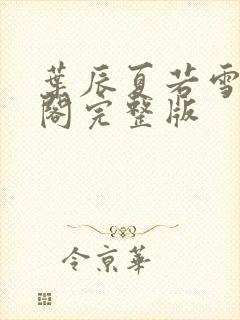 葉辰夏若雪
閣完整版
令京華